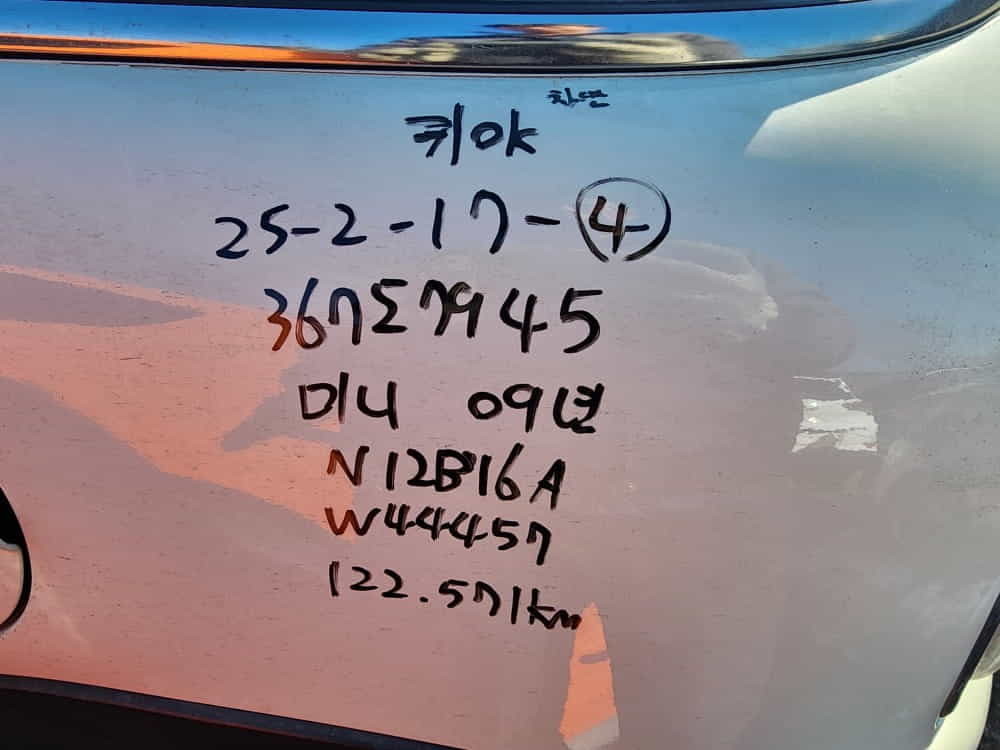 차면
키야
25-2-17-④
367도7945
미니 09년
N12B16A
W444457
122.571km